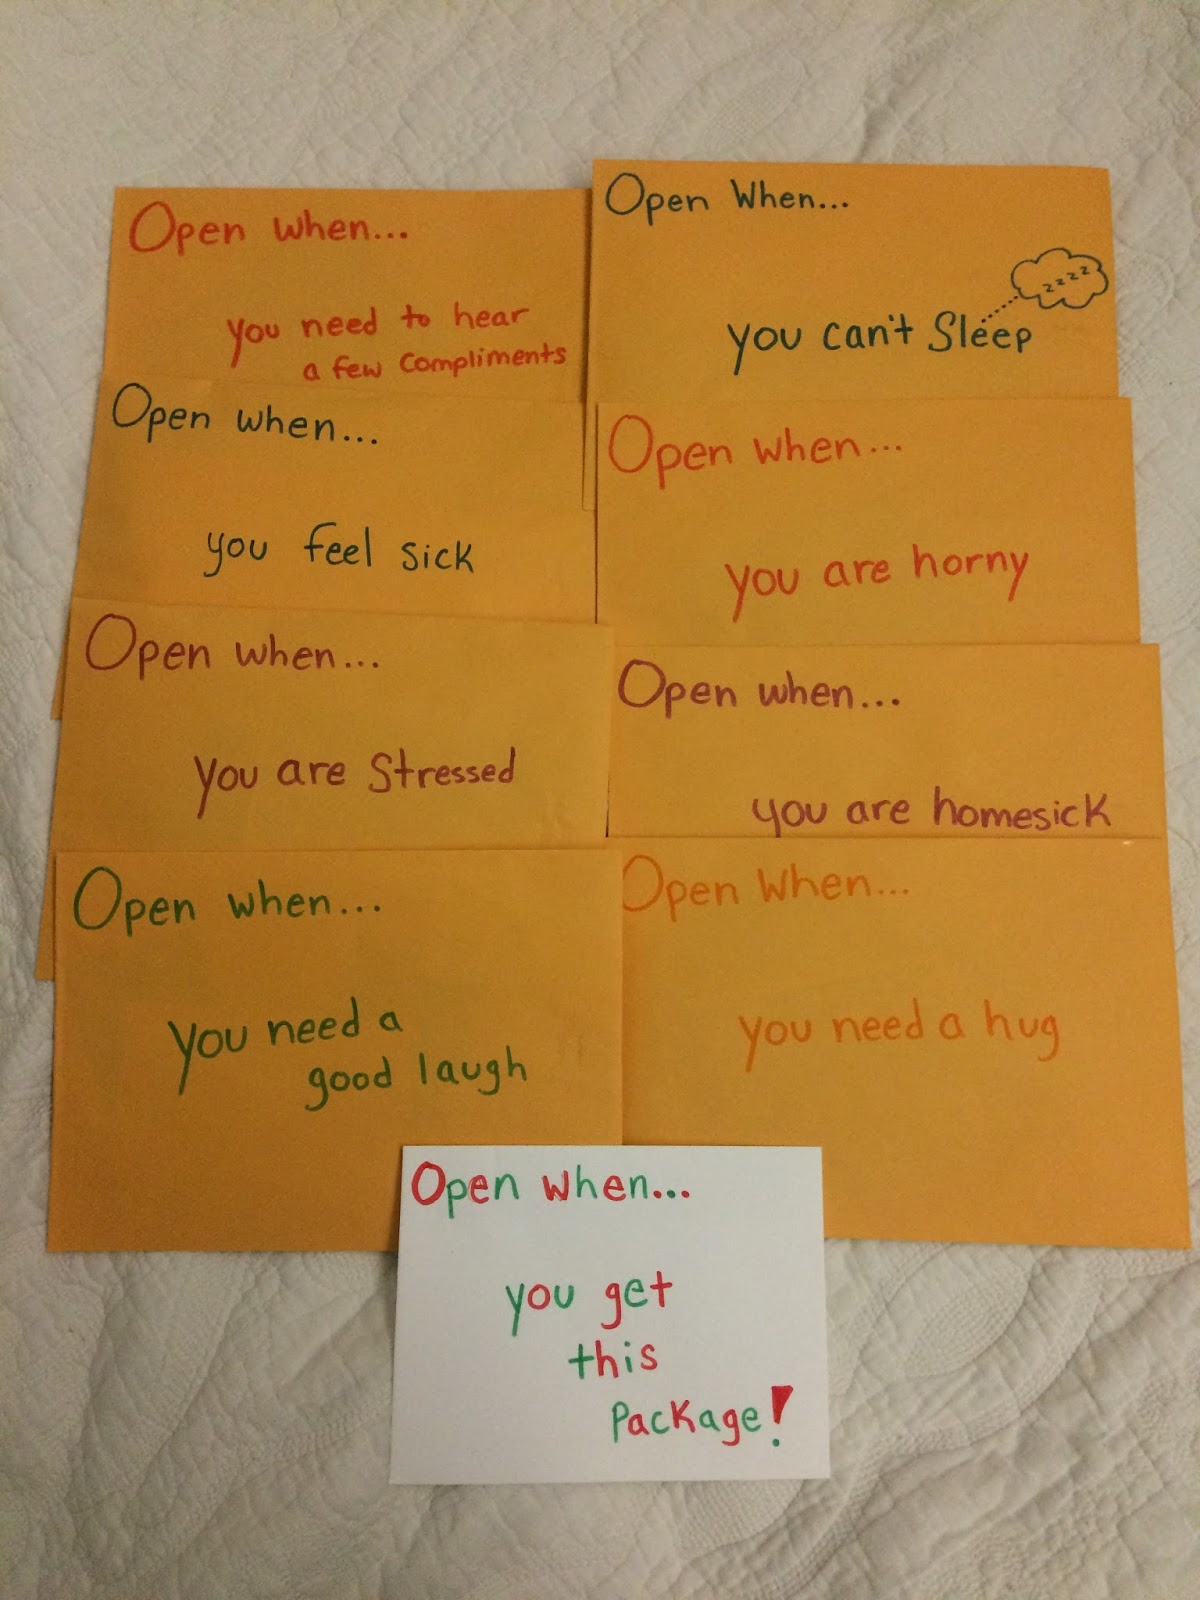 Open when...
you need to hear
a few compliments
Open When...
zzzz
you can't Sleep
Open when...
you feel sick
Open when...
you are horny
Open when...
you are Stressed
Open when...
you are homesick
Open when...
you need a
good laugh
Open When...
you need a hug
Open when...
you get
this
Package!